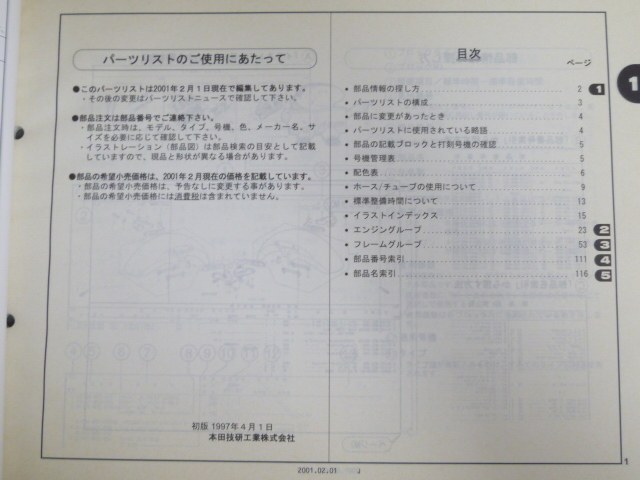 パーツリストのご使用にあたって
●このパーツリストは2001年2月1日現在で編集してあります。
・その後の変更はパーツリストニュースで確認して下さい。
●部品注文は部品番号でご連絡下さい。
・部品注文時は、モデル、タイプ、号機、色、メーカー名、サ
イズを必要に応じて確認して下さい。
・イラストレーション（部品図）は部品検索の目安として記載
していますので、現品と形状が異なる場合があります。
●部品の希望小売価格は、2001年2月現在の価格を記載しています。
・部品の希望小売価格は、予告なしに変更する事があります。
・部品の希望小売価格には消費税は含まれていません。
初版 1997年4月1日
本田技研工業株式会社
目次
ページ
• 部品情報の探し方 2 1
• パーツリストの構成 3
• 部品に変更があったとき 4
• パーツリストに使用されている略語 4
• 部品の記載ブロックと打刻号機の確認 5
• 号機管理表 5
• 配色表 6
• ホース/チューブの使用について 9
• 標準整備時間について 13
• イラストインデックス 15
• エンジングループ 23 2
• フレームグループ 53 3
• 部品番号索引 111 4
• 部品名索引 116 5
1
2001.02.01 J
1